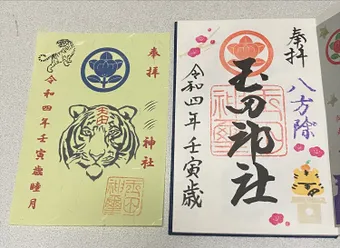 奉拝
神社
令和四年壬寅歳睦月
奉拝
八方除
玉田神社
令和四年壬寅歳